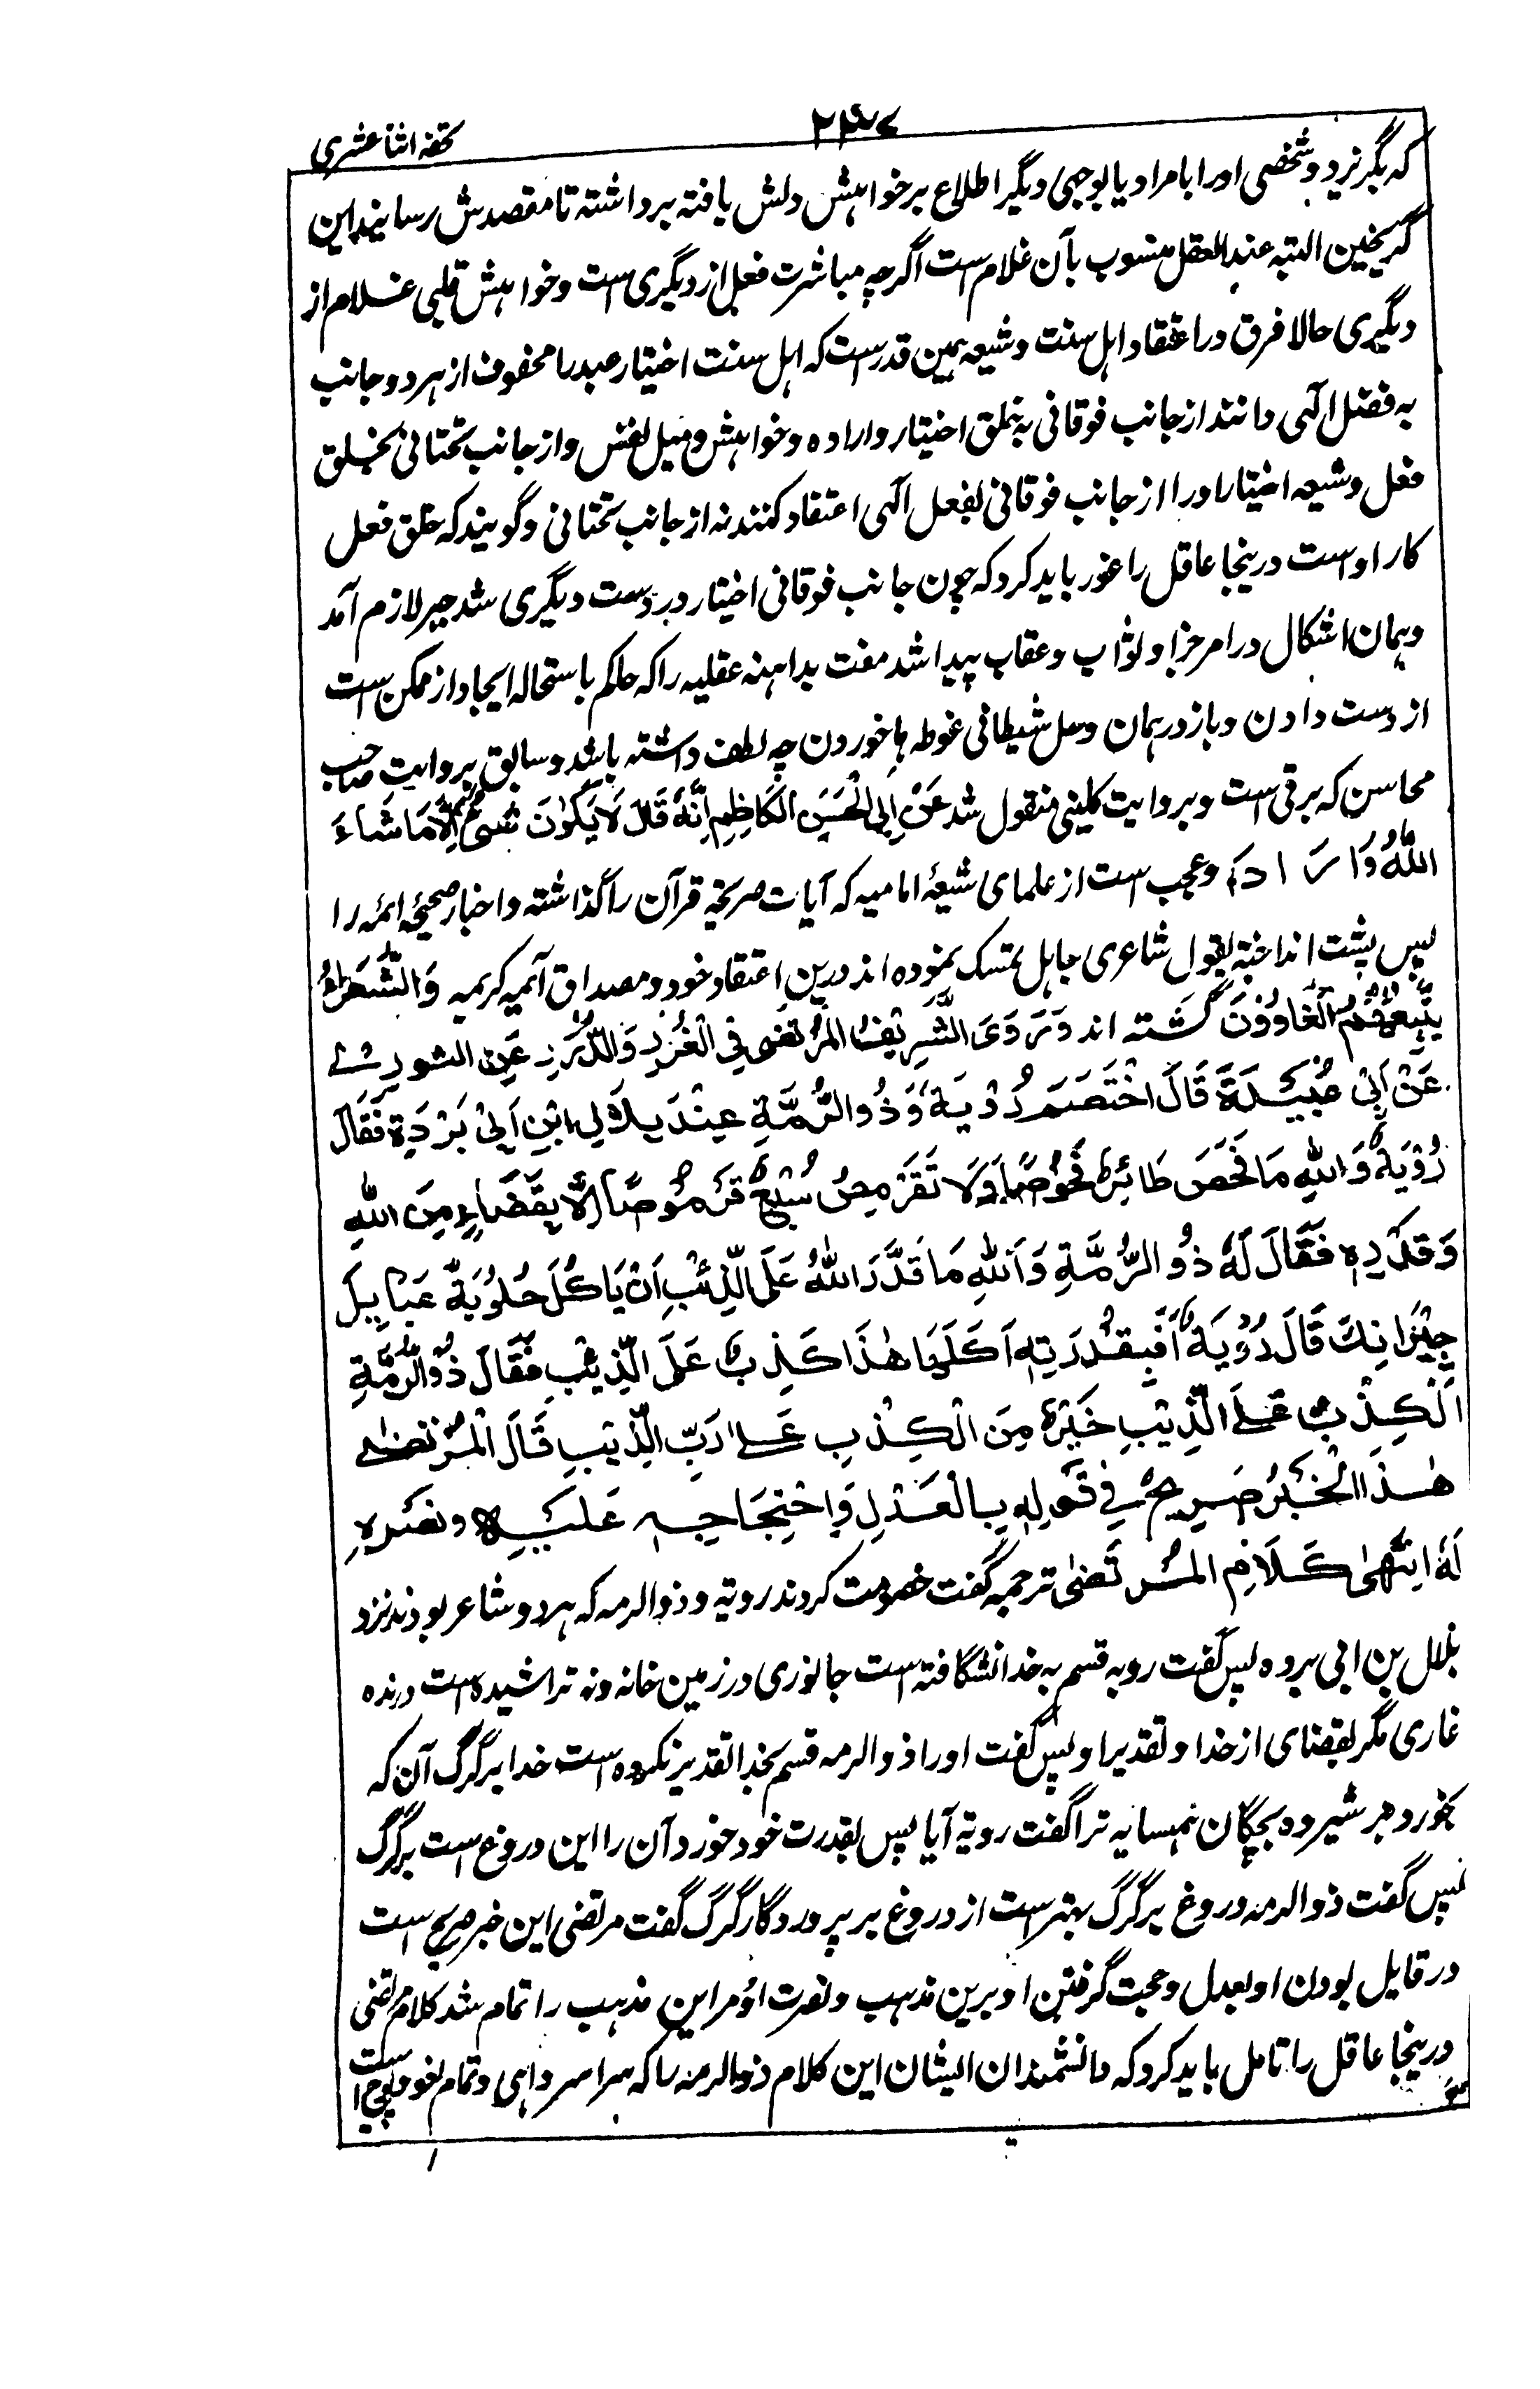 تحفه اثنا عشری
که بگریزد و شخصی اورا بامراد یا بوجهی دیگر اطلاع بر خواهش دلش یافته برداشته تا مقصدش رسانید این
گریختن البته عند العقل منسوب بآن غلام است اگرچه مباشرت فعل از دیگری است و خواهش قلبی غلام از
دیگری حالا فرق در اعتقاد اهل سنت و شیعه همین قدر است که اهل سنت اختیار عبد را محفوف از هر دو جانب
به فضل الهی دانند از جانب فوقانی بخلق اختیار و اراده و خواهش و میل نفس و از جانب تحتانی بخلق
فعل و شیعه اختیار اورا از جانب فوقانی بفعل الهی اعتقاد کنند نه از جانب تحتانی و گویند که خلق فعل
کار اوست درینجا عاقل را غور باید کرد که چون جانب فوقانی اختیار در دست دیگری شد جبر لازم آمد
و همان اشکال در امر جزا و ثواب و عقاب پیدا شد مفت بداهته عقلیه را که حاکم باستحاله ایجاد از ممکن است
از دست دادن و باز در همان وحل شیطانی غوطه ها خوردن چه لطف داشته باشد و سابق بروایت صاحب
محاسن که برقی است و بروایت کلینی منقول شد عَنْ اَبِی الْحَسَنِ الْكَاظِمِ اِنَّهٗ قَالَ لَا يَكُوْنَ شَیْءٌ اِلَّا مَا شَاءَ
اللّٰهُ وَاَرَادَ و عجب است از علمای شیعهٔ امامیه که آیات صریحهٔ قرآن را گذاشته و اخبار صحیحهٔ ائمه را
پس پشت انداخته بقول شاعری جاهل تمسک نموده اند درین اعتقاد خود و مصداق آئیه کریمه وَالشُّعَرَاءُ
يَتَّبِعُهُمُ الْغَاوُوْنَ گشته اند وَرَوَی الشَّرِيْفُ الْمُرْتَضٰی فِی الْغُرَرِ وَالدُّرَرِ عَنِ الثوری
عَنْ اَبِیْ عُبَيْدَةَ قَالَ اخْتَصَمَ رُؤْيَةُ وَذُو الرُّمَّةِ عِنْدَ بِلَالِ ابْنِ اَبِیْ بَرْدَةَ فَقَالَ
رُؤْيَةُ وَاللّٰهِ مَا فَحَصَ طَائِرٌ فَحُوْصًا وَلَا تَقَرْمَصُ سَبُعٌ قَرْمُوْصًا اِلَّا بِقَضَاءٍ مِنَ اللّٰهِ
وَقَدْرِهٖ فَقَالَ لَهٗ ذُو الرُّمَّةِ وَاللّٰهِ مَا قَدَّرَ اللّٰهُ عَلَی الذِّئْبِ اَنْ يَاكُلَ حَلُوْبَةَ عَيَايِيلَ
جِيْرَانِكَ قَالَ رُوْيَةُ اَفَبِقُدْرَتِهٖ اَكَلَهَا هٰذَا كَذِبٌ عَلَی الذِّئْبِ فَقَالَ ذُو الرُّمَّةِ
اَلْكِذْبُ عَلَی الذِّئْبِ خَيْرٌ مِنَ الْكِذْبِ عَلٰی رَبِّ الذِّئْبِ قَالَ الْمُرْتَضٰی
هٰذَا الْخَبَرُ صَرِيحٌ فِیْ قَوْلِهٖ بِالْعَدْلِ وَاحْتِجَاجِهٖ عَلَيْهِ وَنَصْرِهٖ
لَهٗ اِنْتَهٰی كَلَامُ الْمُرْتَضٰی ترجمه گفت خصومت کردند رویه و ذو الرمه که هر دو شاعر بودند نزد
بلال بن ابی برده پس گفت رویه قسم به خدا نشگافته است جانوری در زمین خانه و نه تراشیده است درنده
غاری مگر بقضای از خدا و تقدیر او پس گفت اورا ذو الرمه قسم بخدا تقدیر نکرده است خدا بر گرگ آن که
بخورد هر شیر ده بچگان همسایه ترا گفت رویه آیا پس بقدرت خود خورد آن را این دروغ است بر گرگ
پس گفت ذو الرمه دروغ بر گرگ بهتر است از دروغ بر پروردگار گرگ گفت مرتضی این خبر صریح است
در قایل بودن او بعدل و حجت گرفتن او برین مذهب و نصرت او مر این مذهب را تمام شد کلام مرتضی
درینجا عاقل را تامل باید کرد که دانشمندان ایشان این کلام ذو الرمه را که سراسر واهی و تمام لغو و پوچ است